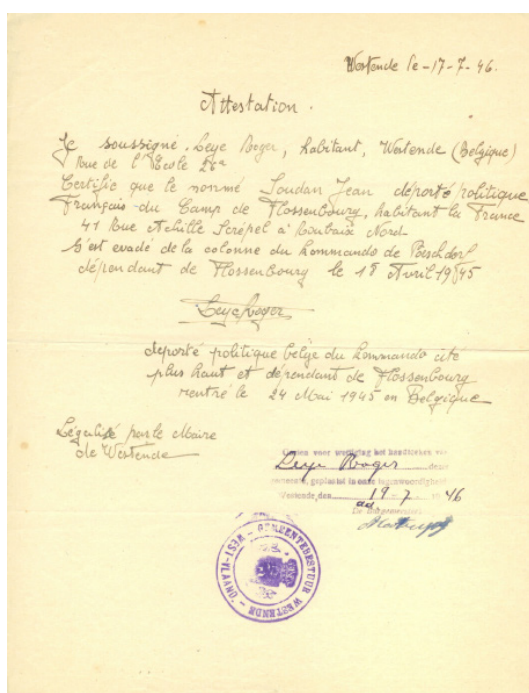 Westende le -17-7-46.
Attestation.
Je soussigné, Leye Roger, habitant, Westende (Belgique)
Rue de l'Ecole 26a
Certifie que le nommé Soudan Jean déporté politique
Français du Camp de Flossenbourg, habitant la France
41 Rue Achille Scrépel à Roubaix Nord
S'est evadé de la colonne du kommando de
dépendant de Flossenbourg le 18 Avril 1945
Leye Roger
déporté politique belge du kommando cité
plus haut et dépendant de Flossenbourg
rentré le 24 Mai 1945 en Belgique
Légalisé par le Maire
de Westende
Gezien voor wettiging het handteeken van
Leye Roger dezer
geplaatst in onze tegenwoordigheid
Westende, den 19-7 19 46
De Burgemeester
GEMEENTEBESTUUR WESTENDE - WEST-VLAAND. -